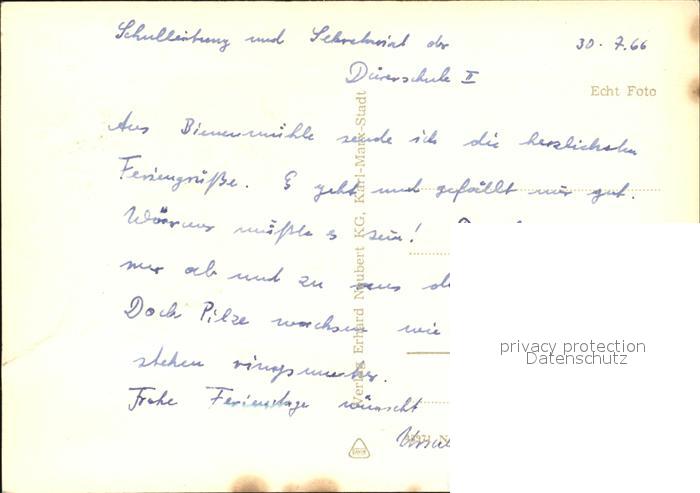 Schulleitung und Sekretariat der
30. 7. 66
Dürerschule II
Echt Foto
Aus Bienenmühle sende ich die herzlichsten
Feriengrüße. Es geht und gefällt mir gut.
Wärmer müßte es sein!
nur ab und zu aus
Doch Pilze wachsen wie
stehen ringsumher.
Frohe Ferientage wünscht
Verlag Erhard Neubert KG, Karl-Marx-Stadt
privacy protection
Datenschutz